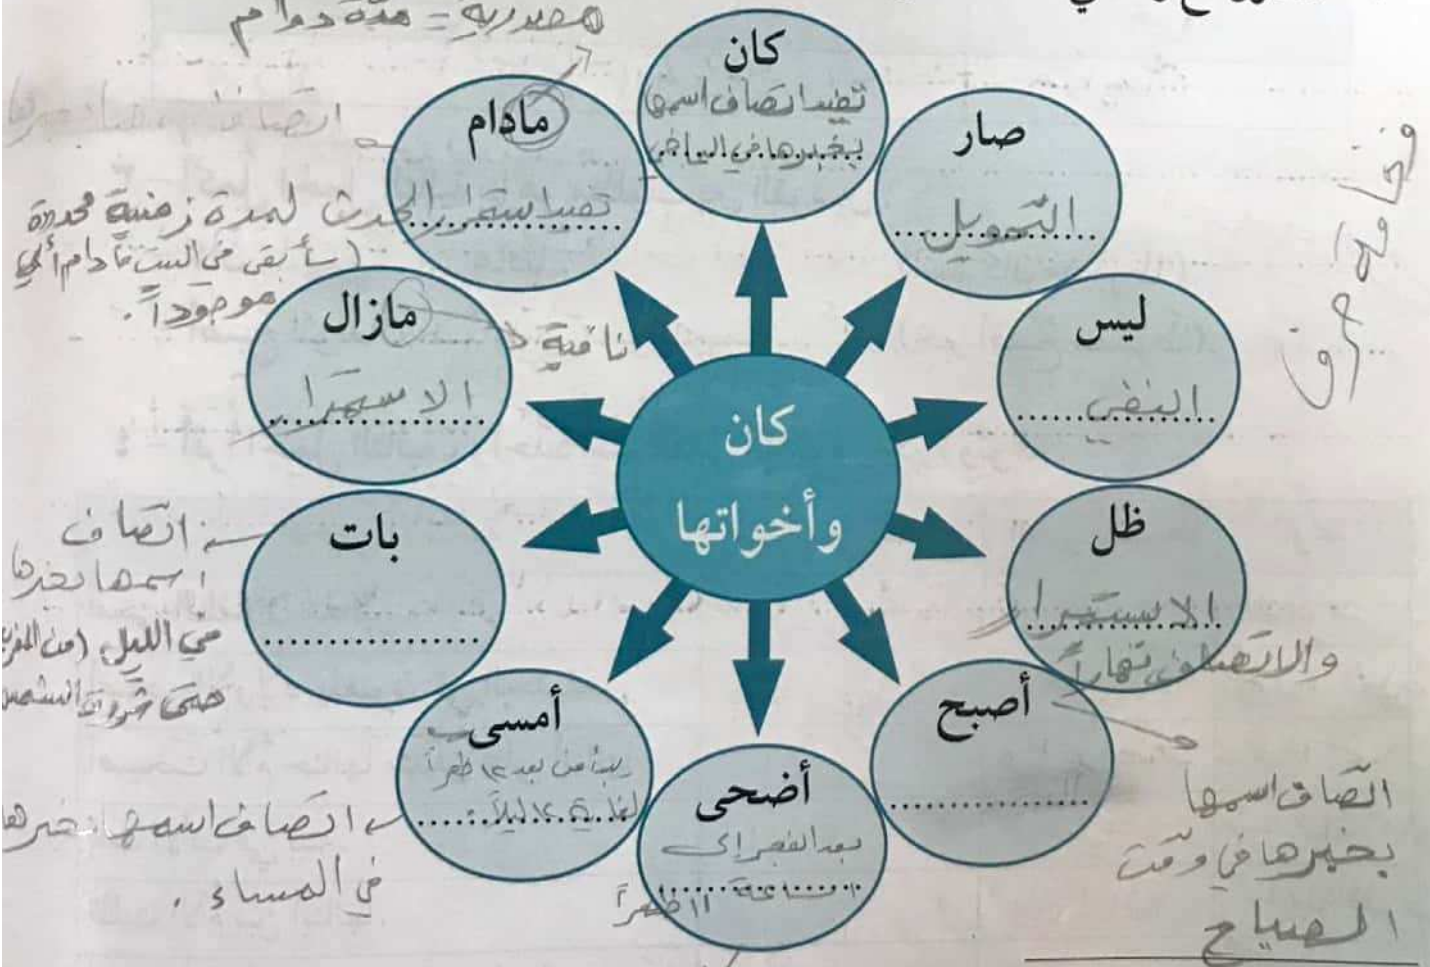 مصدرية = مدة دوام
كان
تفيد اتصاف اسمها
بخبرها في الماضي
صار
التحويل
ليس
النفي
ظل
الاستمرار
والاتصاف نهاراً
أصبح
اتصاف اسمها
بخبرها في وقت
الصباح
أضحى
بعد الفجر إلى
الساعة ١١ ظهراً
أمسى
يبدأ من بعد ١٢ ظهراً
لغاية ١٢ ليلاً
اتصاف اسمها بخبرها
في المساء .
بات
اتصاف
اسمها بخبرها
في الليل (من
حتى شروق الشمس
مازال
نافية
الاستمرار
مادام
تفيد استمرار الحدث لمدة زمنية محددة
(سأبقى في البيت مادام أبي
موجوداً .
كان
وأخواتها